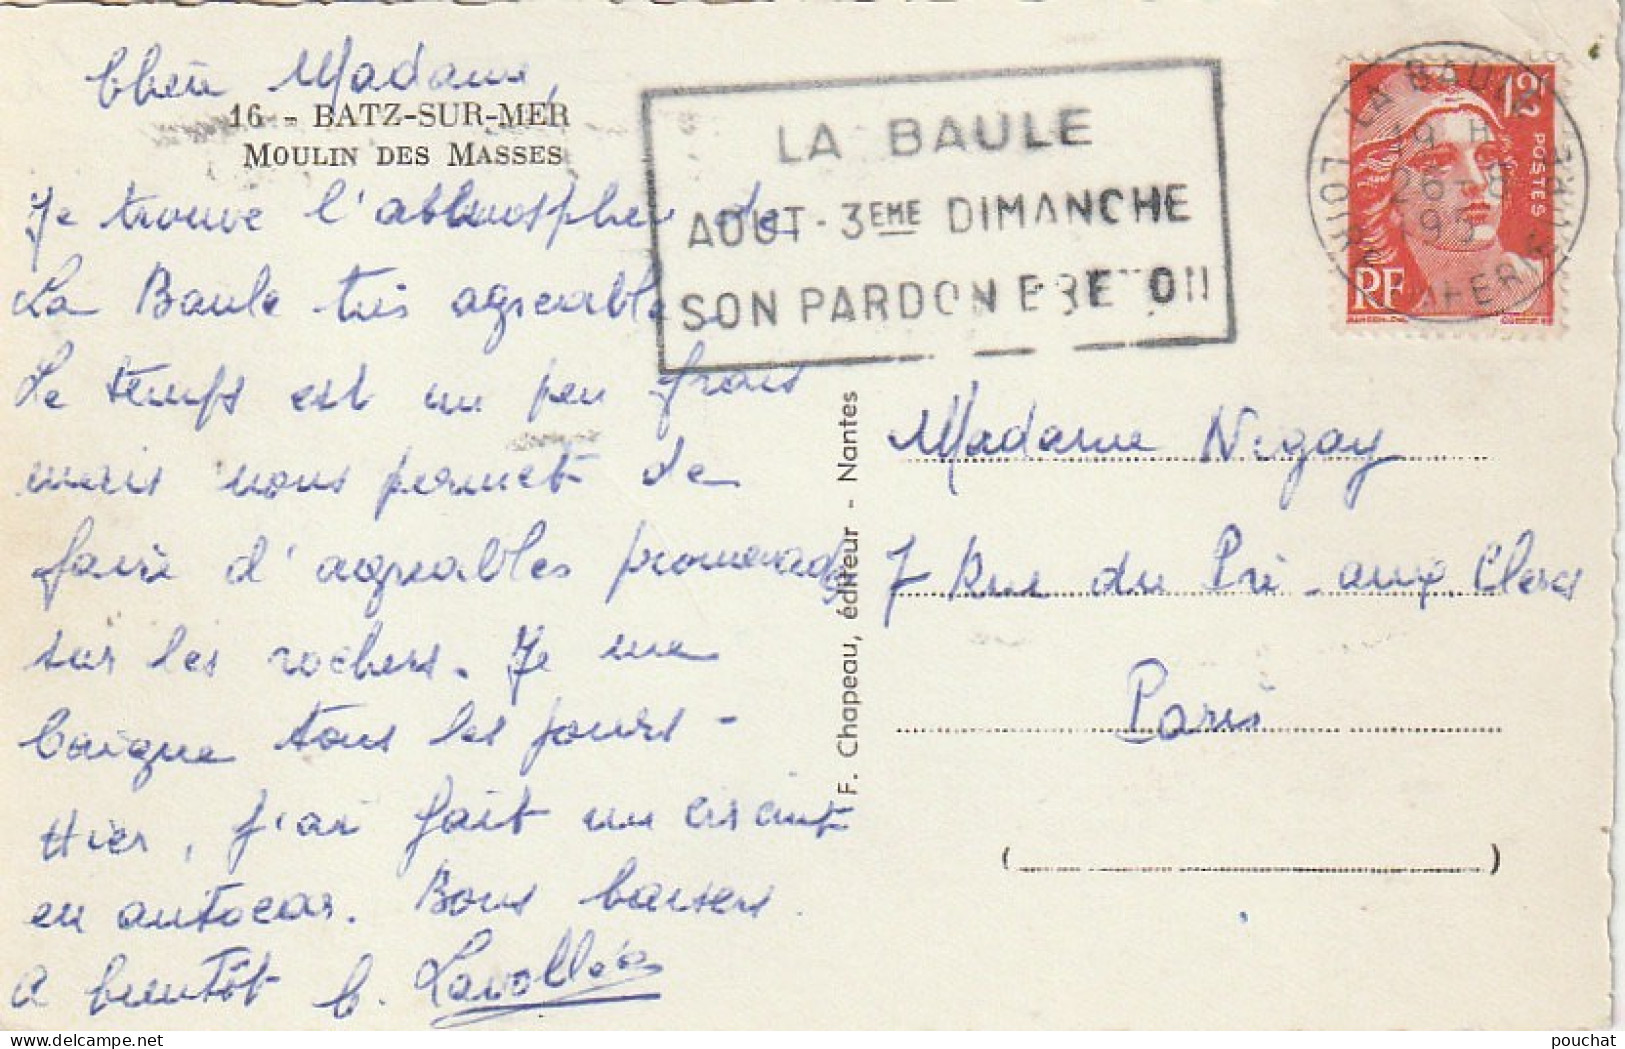 Chère Madame,
16 - BATZ-SUR-MER
MOULIN DES MASSES
Je trouve l'atmosphère de
La Baule très agréable.
Le temps est un peu frais
mais nous permet de
faire d'agréables promenades
sur les rochers. Je me
baigne tous les jours -
Hier, j'ai fait un circuit
en autocar. Bons baisers.
A bientôt
LA BAULE
AOUT - 3EME DIMANCHE
SON PARDON BRETON
F. Chapeau, éditeur - Nantes
12F
POSTES
RF
LA BAULE
19 H
26 - 8
195
LOIRE
Madame Nigay
7 Rue du Pré-aux-Clercs
Paris
( )
pouchat